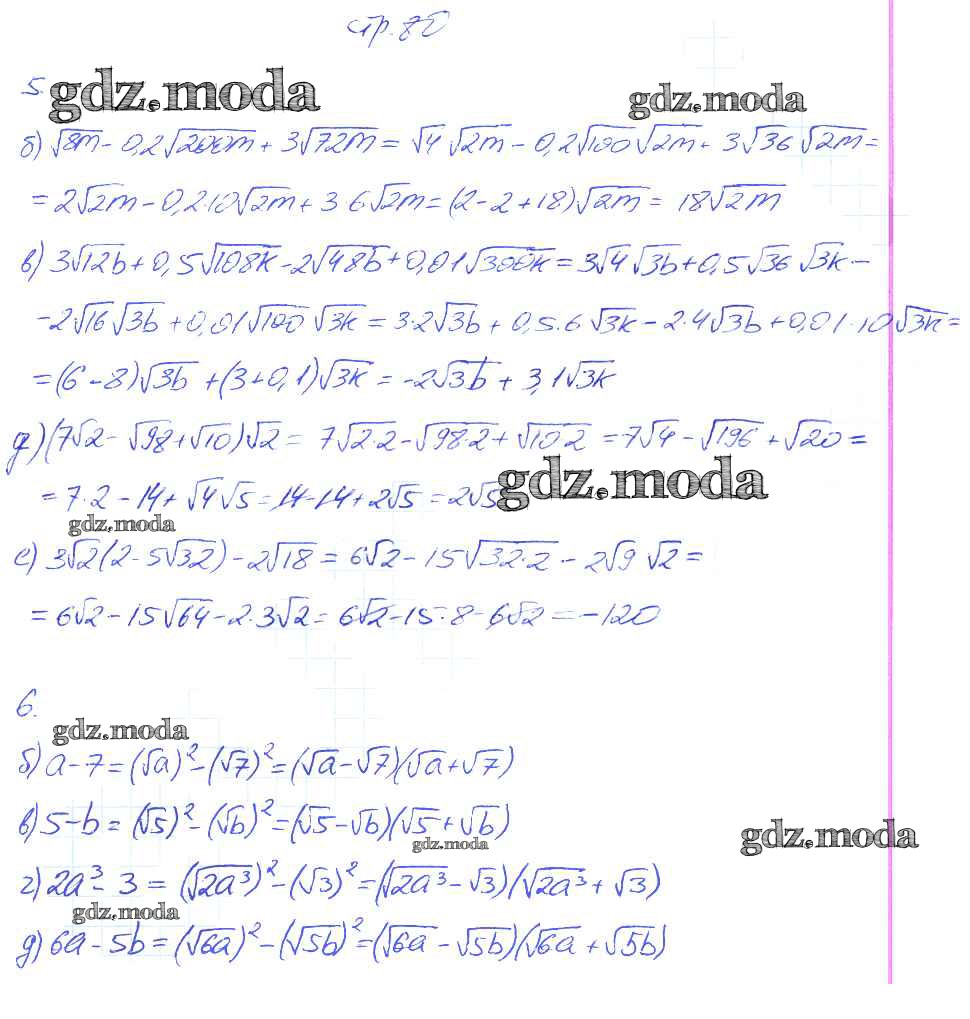 стр. 80
5.
gdz.moda
gdz.moda
б) √8m - 0,2√200m + 3√72m = √4 √2m - 0,2√100 √2m + 3√36 √2m =
= 2√2m - 0,2·10√2m + 3·6√2m = (2-2+18)√2m = 18√2m
в) 3√12b + 0,5√108k - 2√48b + 0,01√300k = 3√4 √3b + 0,5√36 √3k -
- 2√16 √3b + 0,01√100 √3k = 3·2√3b + 0,5·6√3k - 2·4√3b + 0,01·10√3k =
= (6-8)√3b + (3+0,1)√3k = -2√3b + 3,1√3k
д) (7√2 - √98 + √10)√2 = 7√2·2 - √98·2 + √10·2 = 7√4 - √196 + √20 =
= 7·2 - 14 + √4 √5 = 14-14+2√5 = 2√5
gdz.moda
gdz.moda
е) 3√2(2-5√32) - 2√18 = 6√2 - 15√32·2 - 2√9 √2 =
= 6√2 - 15√64 - 2·3√2 = 6√2 - 15·8 - 6√2 = -120
6.
gdz.moda
б) a - 7 = (√a)² - (√7)² = (√a - √7)(√a + √7)
в) 5 - b = (√5)² - (√b)² = (√5 - √b)(√5 + √b)
gdz.moda
gdz.moda
г) 2a³ - 3 = (√2a³)² - (√3)² = (√2a³ - √3)(√2a³ + √3)
gdz.moda
д) 6a - 5b = (√6a)² - (√5b)² = (√6a - √5b)(√6a + √5b)